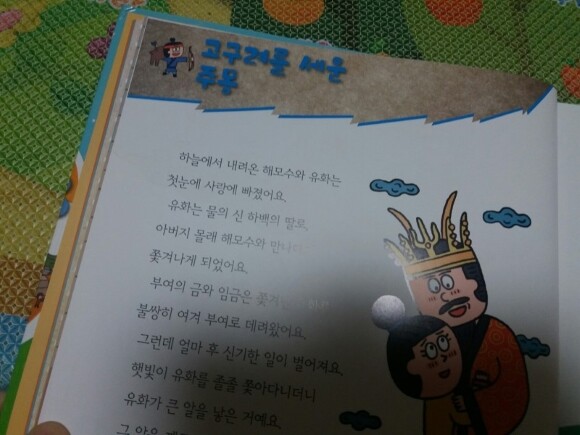 고구려를 세운
주몽
하늘에서 내려온 해모수와 유화는
첫눈에 사랑에 빠졌어요.
유화는 물의 신 하백의 딸로,
아버지 몰래 해모수와 만나다
쫓겨나게 되었어요.
부여의 금와 임금은 쫓겨난
불쌍히 여겨 부여로 데려왔어요.
그런데 얼마 후 신기한 일이 벌어져요.
햇빛이 유화를 졸졸 쫓아다니더니
유화가 큰 알을 낳은 거예요.
그 알은